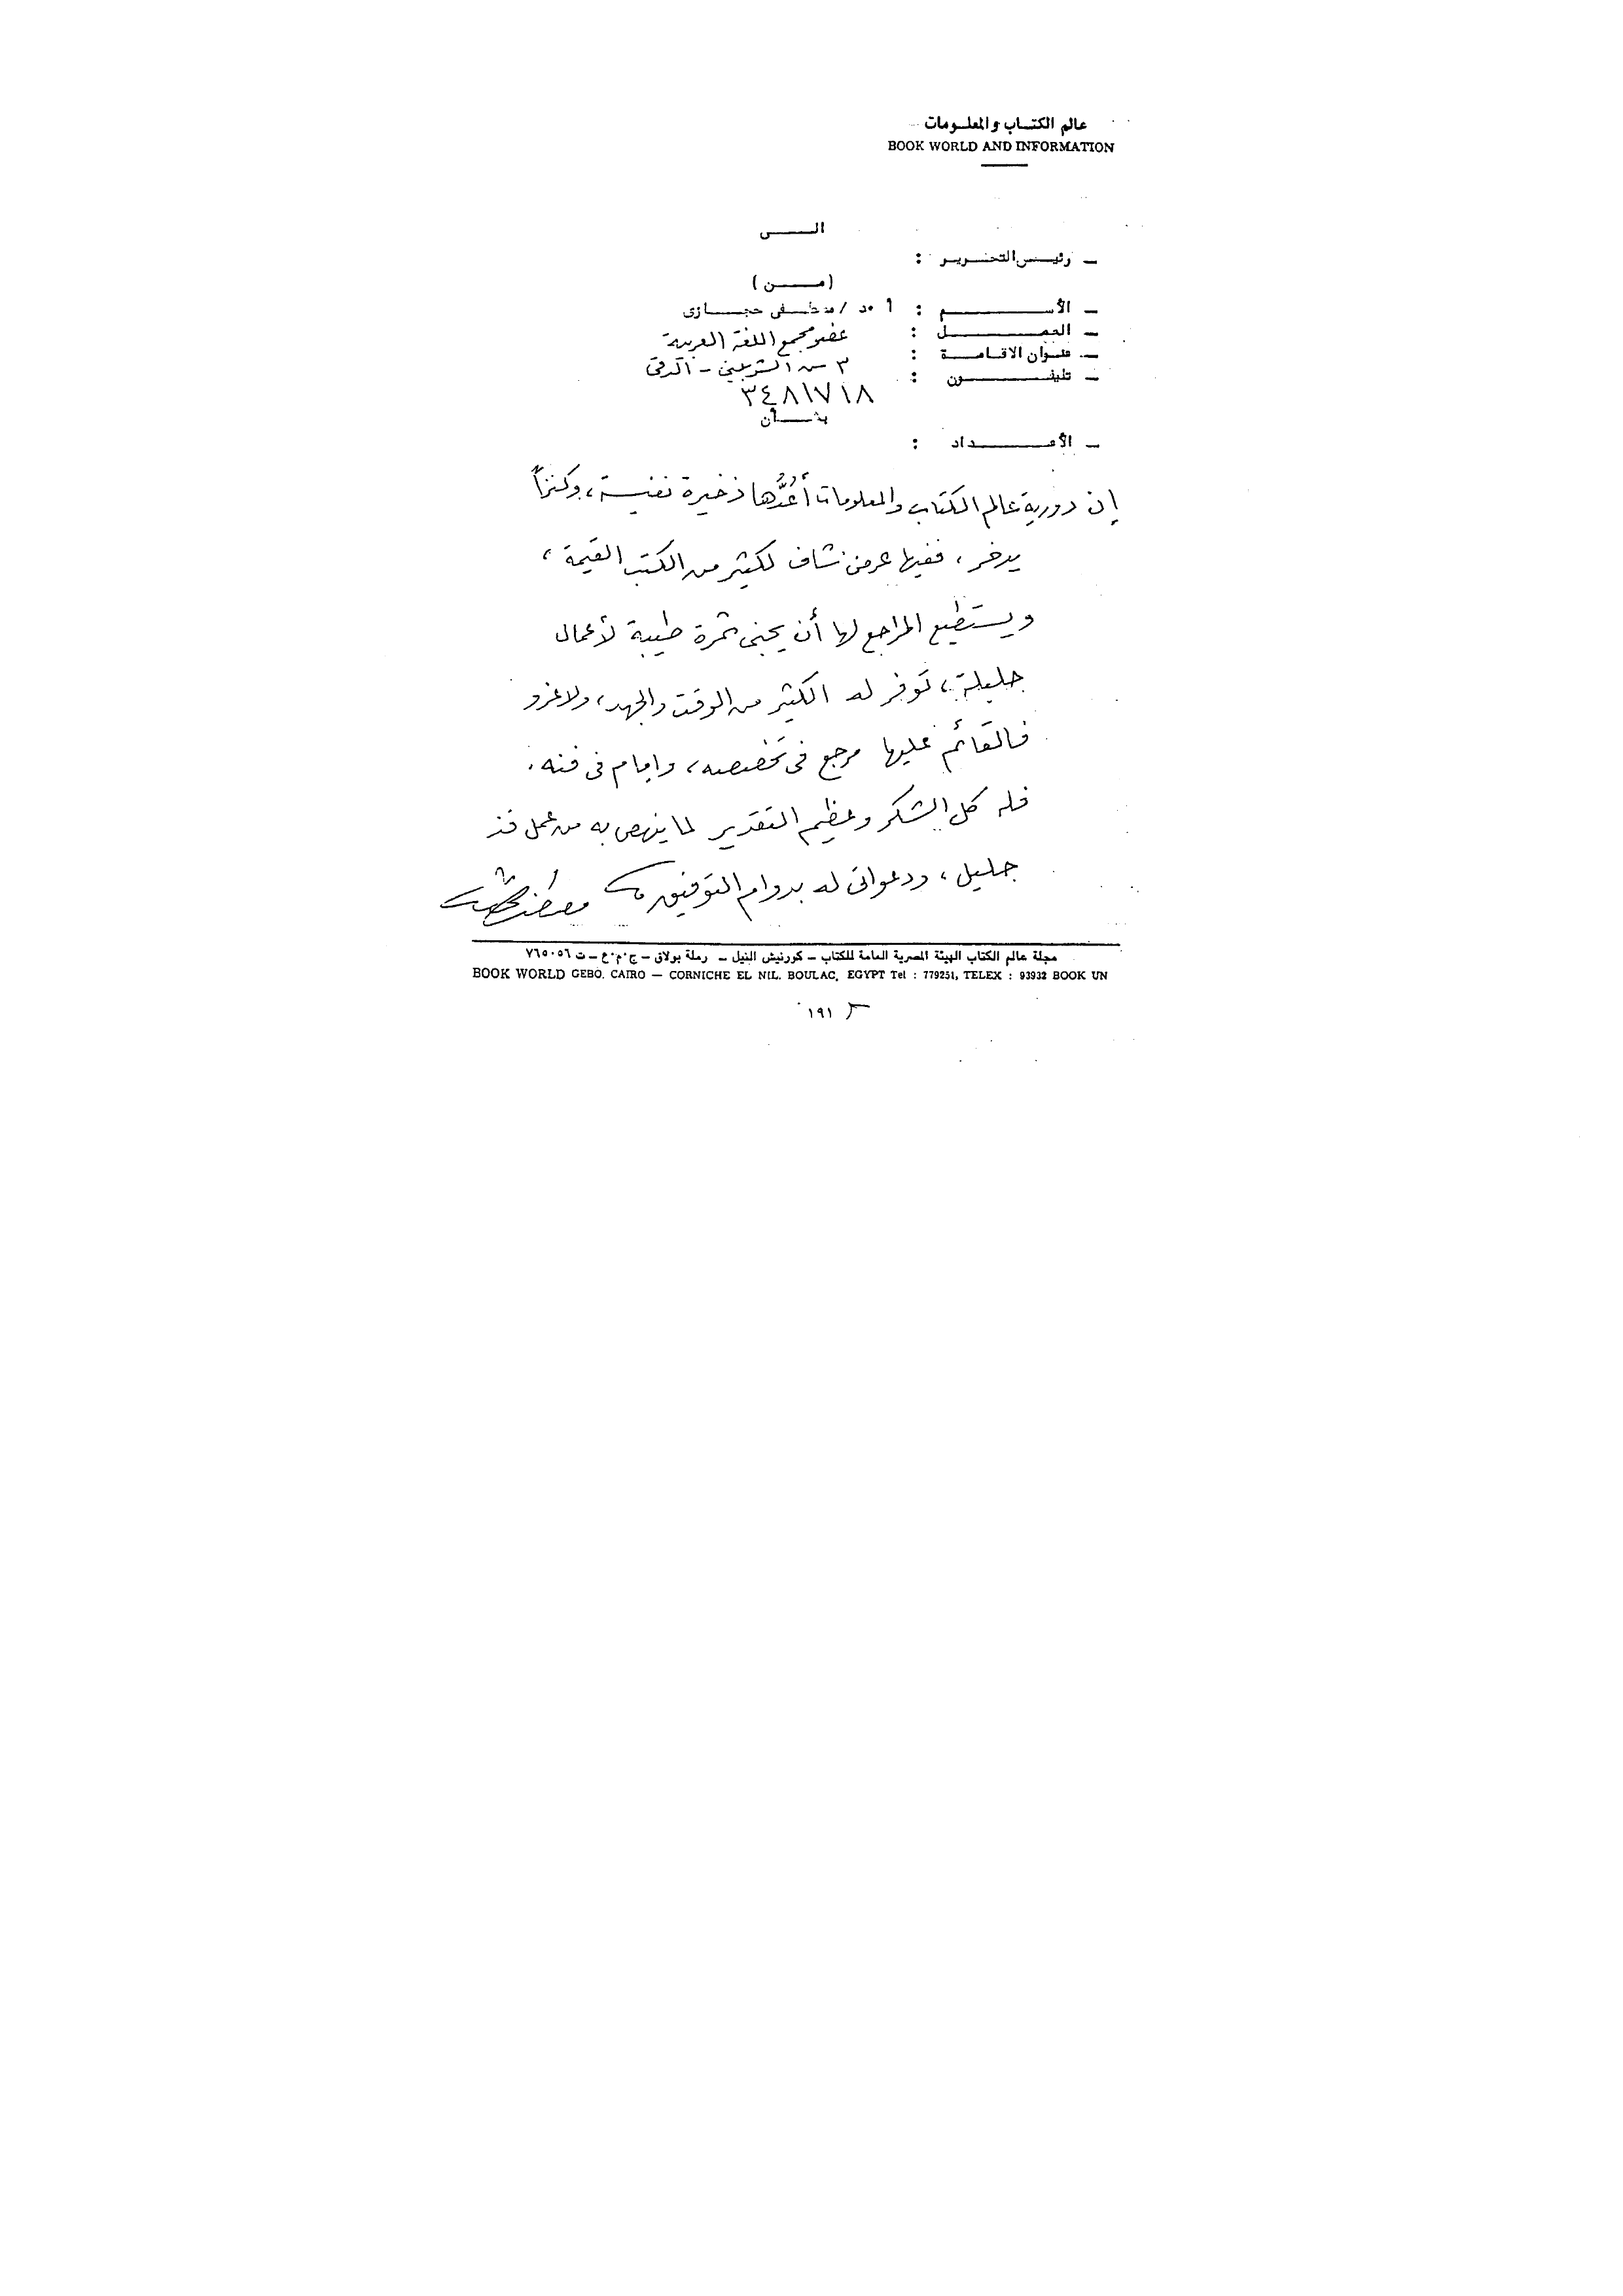 عالم الكتاب والمعلومات
BOOK WORLD AND INFORMATION
الى
ـ رئيس التحرير :
(من)
ـ الأسم : أ ٠د / مصطفى حجازى
ـ العمل : عضو مجمع اللغة العربية
ـ عنوان الاقامة : ٣ ش الشربينى - الدقى
ـ تليفون : ٣٤٨١٧١٨
بشأن
ـ الأعداد :
إن دورية عالم الكتاب والمعلومات أَعُدُّها ذخيرة نفيسة، وكنزاً
يدخر، ففيها عرض شاف لكثير من الكتب القيمة،
ويستطيع المراجع لها أن يجنى ثمرة طيبة لأعمال
جليلة، توفر له الكثير من الوقت والجهد، ولا غرو
فالقائم عليها مرجع فى تخصصه، وإمام فى فنه.
فله كل الشكر وعظيم التقدير لما ينهض به من عمل فذ
جليل، ودعواتى له بدوام التوفيق مصطفى حجازى
مجلة عالم الكتاب الهيئة المصرية العامة للكتاب ـ كورنيش النيل ـ رملة بولاق ـ ج.م.ع ـ ت ٧٦٥٠٥٦
BOOK WORLD GEBO. CAIRO — CORNICHE EL NIL. BOULAC, EGYPT Tel : 779251, TELEX : 93932 BOOK UN
١٩١